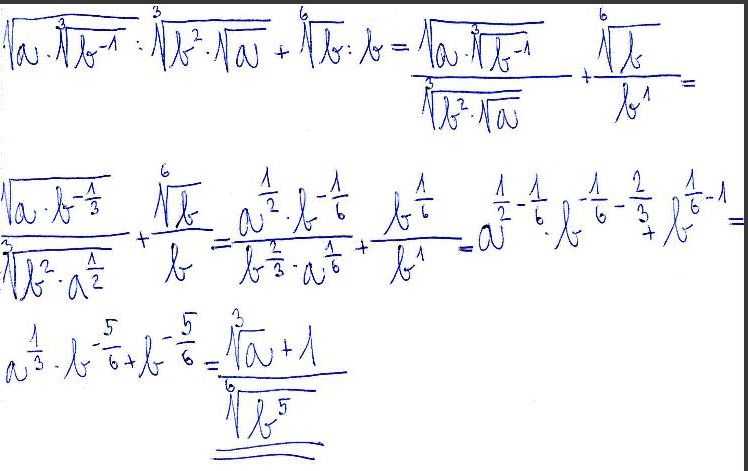 √(a·∛(b⁻¹)) : ∛(b²·√a) + ⁶√b : b = √(a·∛(b⁻¹)) / ∛(b²·√a) + ⁶√b / b¹ =
√(a·b^(-1/3)) / ∛(b²·a^(1/2)) + ⁶√b / b = a^(1/2)·b^(-1/6) / b^(2/3)·a^(1/6) + b^(1/6) / b¹ = a^(1/2-1/6)·b^(-1/6-2/3) + b^(1/6-1) =
a^(1/3)·b^(-5/6) + b^(-5/6) = ∛a+1 / ⁶√(b⁵)